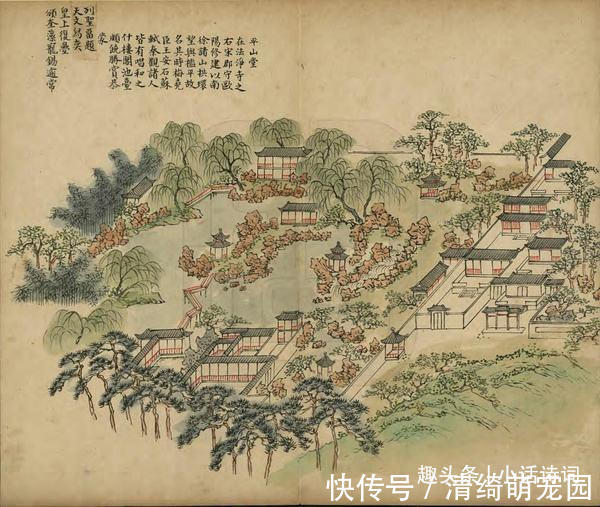 平山堂
在法淨寺之
右宋郡守歐
陽修建以南
徐諸山拱環
望與檻平故
名其時梅堯
臣王安石蘇
軾秦觀諸人
皆有唱和之
什樓閣池臺
頗饒勝賞恭
蒙
列聖留題
天文舄奕
皇上復疊
頒奎藻寵錫逾常
趣头条 | 小话诗词
快传号 / 清绮萌宠园